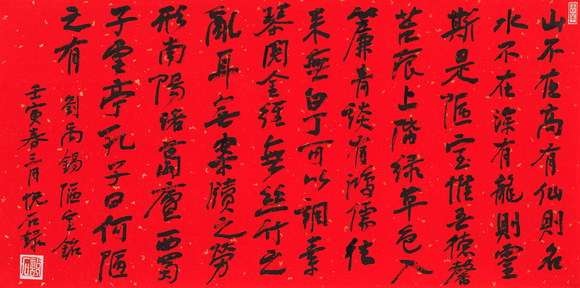 山不在高有仙則名
水不在深有龍則靈
斯是陋室惟吾德馨
苔痕上階綠草色入
簾青談有鴻儒往
來無白丁可以調素
琴閱金經無絲竹之
亂耳無案牘之勞
形南陽諸葛廬西蜀
子雲亭孔子曰何陋
之有
劉禹錫陋室銘
壬寅春三月 石録